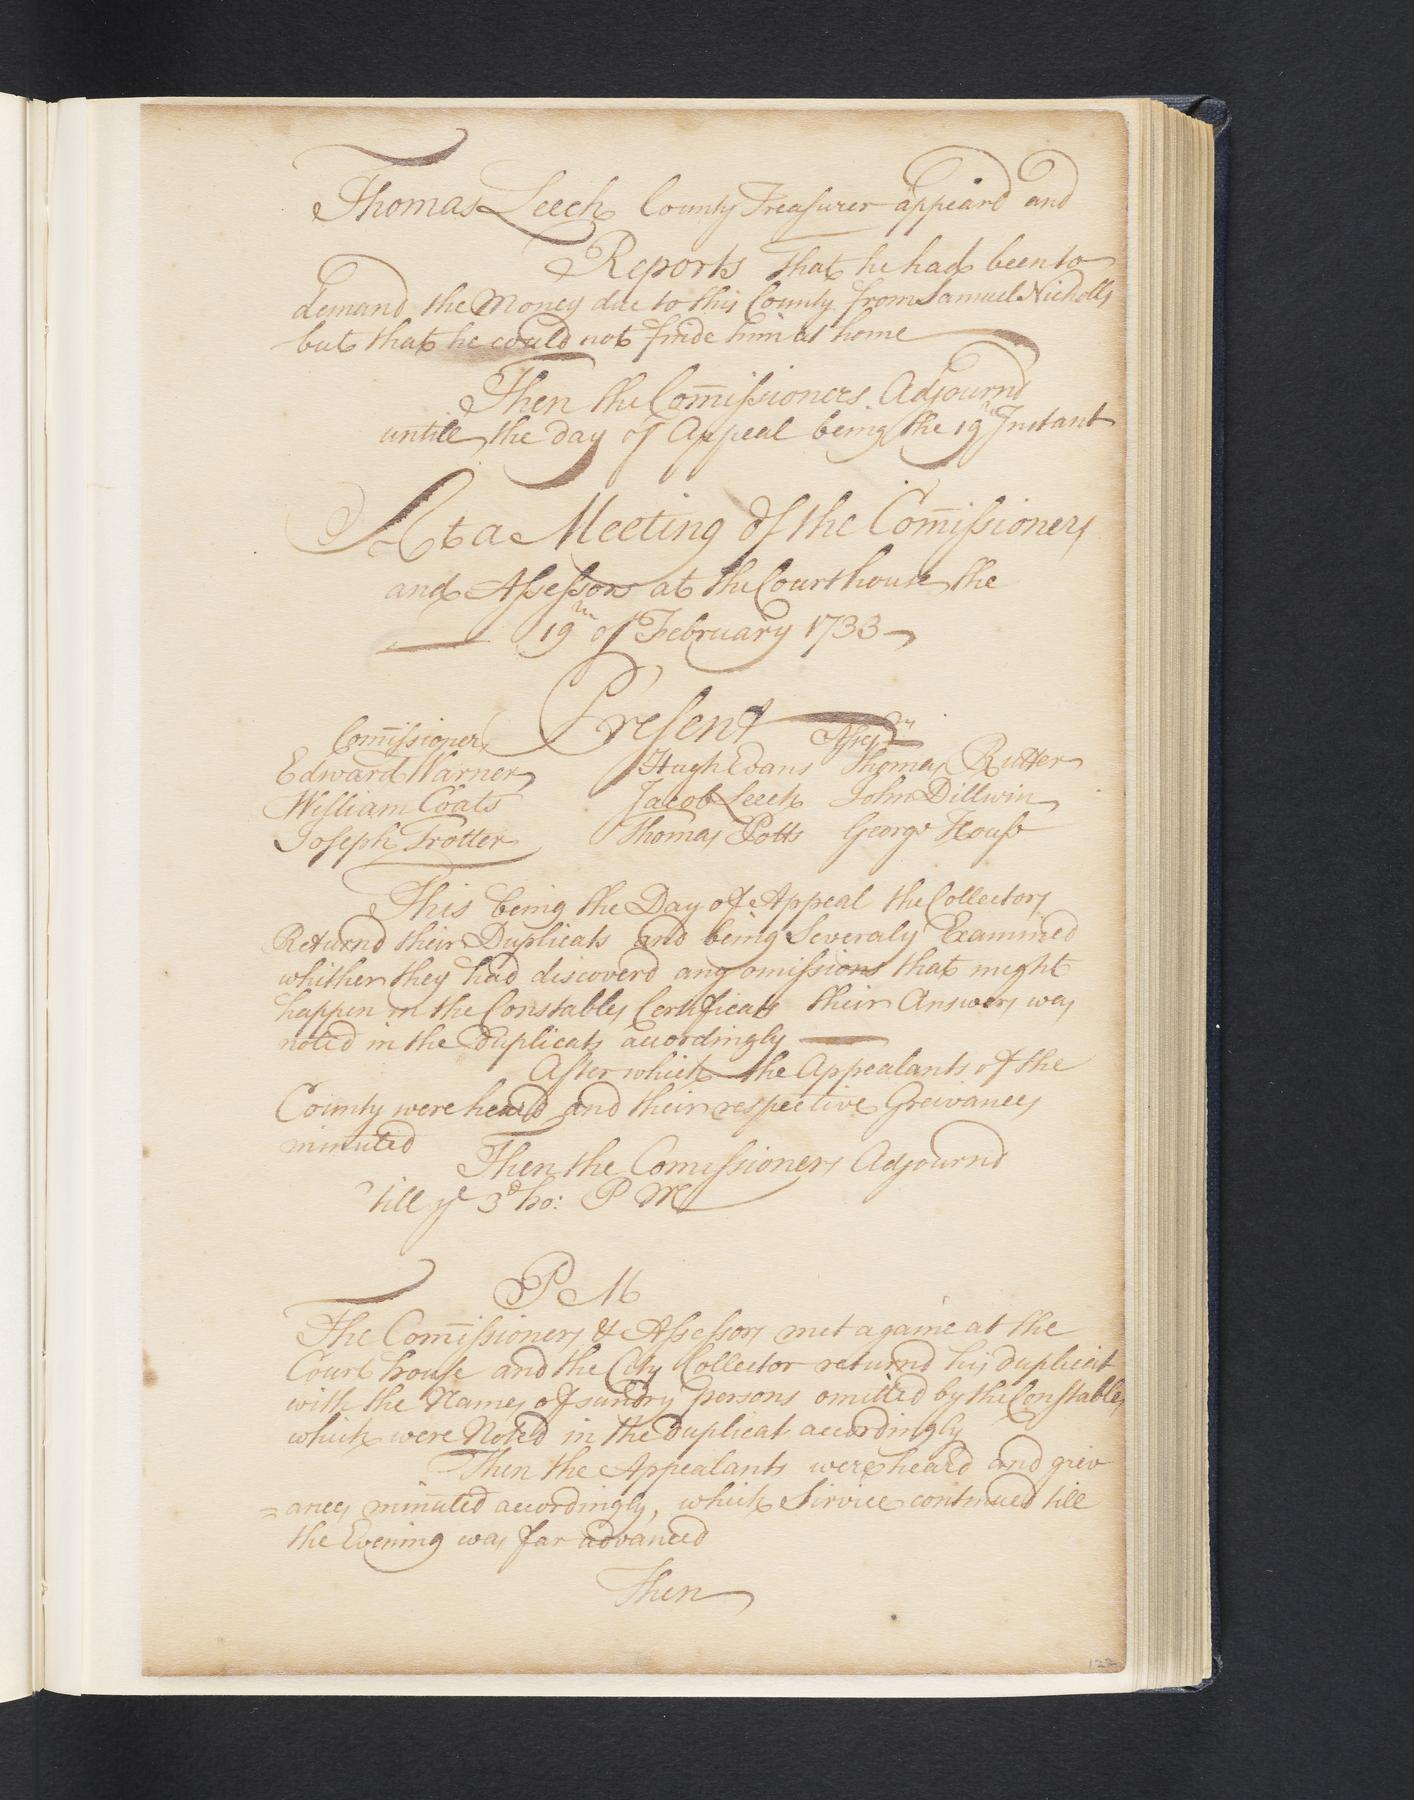 Thomas Leech County Treasurer appeard and
Reports that he had been to
demand the Money due to this County from Samuel Nicholls
but that he could not finde him at home
Then the Com̅issioners Adjournd
untill the day of Appeal being the 19th Instant
At a Meeting of the Com̅issioners
and Assessors at the Courthouse the
19th of February 1733
Present
Com̅issioners Assesrs
Edward Warner Hugh Evans Thomas Rutter
William Coats Jacob Leech John Dillwin
Joseph Trotter Thomas Potts George House
This being the Day of Appeal the Collectors
Returnd their Duplicats and being Severaly Examined
whither they had discoverd any omissions that meght
happen in the Constables Certificats their Answers was
noted in the Duplicats accordingly
After which the Appealants of the
County were heard and their respective Greivances
minuted
Then the Comissioners Adjournd
till ye 3d ho: P M
P M
The Com̅issioners & Assessors met againe at the
Court house and the City Collector returnd his duplicat
with the Names of sundry persons omitted by the Constables
which were Noted in the Duplicat accordingly
Then the Appealants were heard and griev
=ances minuted accordingly, which Sirvice continued till
the Evening was far advanced
Then
122